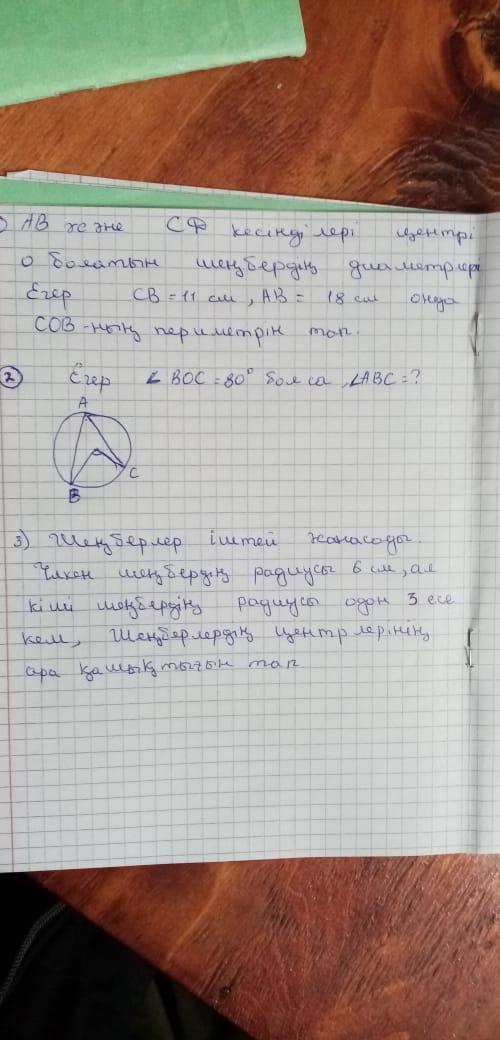 ) АВ және СФ кесінділері центрі
О болатын шеңбердің диаметрлері
Егер СВ = 11 см, АВ = 18 см онда
СОВ-ның периметрін тап.
2 Егер ∠ВОС = 80° болса, ∠АВС = ?
А
С
В
3) Шеңберлер іштей жанасады.
Үлкен шеңбердің радиусы 6 см, ал
кіші шеңбердің радиусы одан 3 есе
кем, Шеңберлердің центрлерінің
ара қашықтығын тап